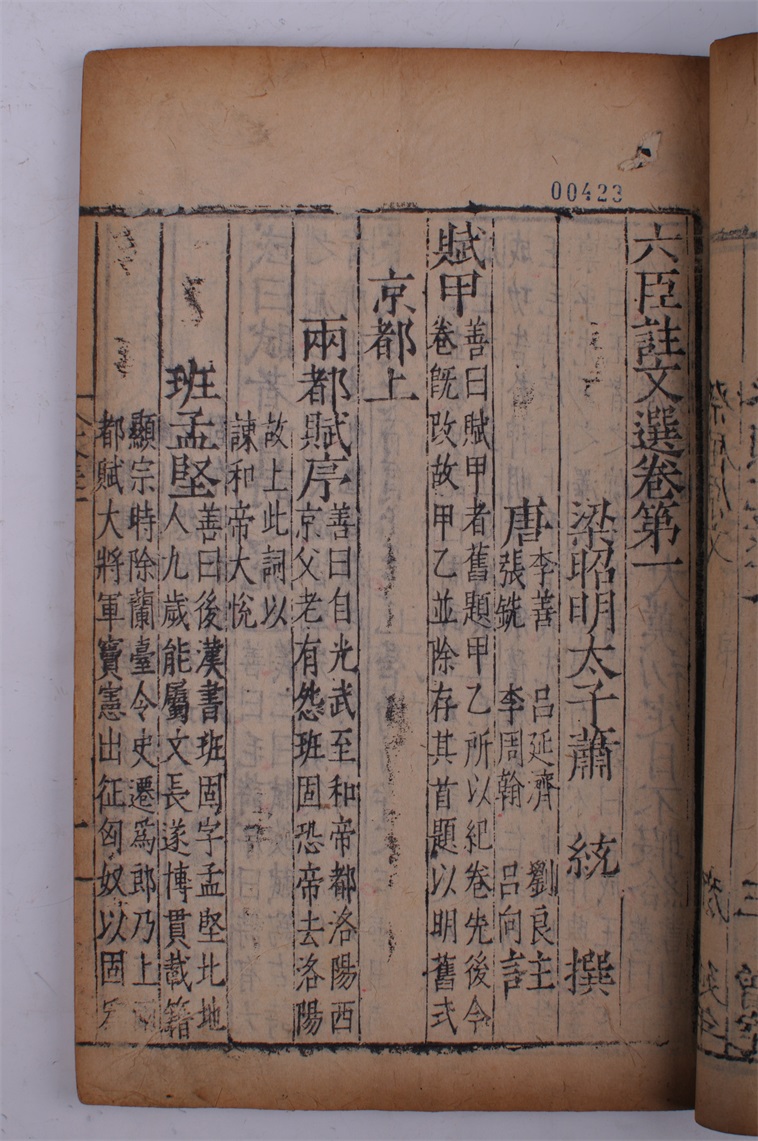 00423
六臣註文選卷第一
梁昭明太子蕭 統 撰
唐 李善 呂延濟 劉良
張銑 李周翰 呂向 註
賦甲 善曰賦甲者舊題甲乙所以紀卷先後今
卷旣改故甲乙並除存其首題以明舊式
京都上
兩都賦序 善曰自光武至和帝都洛陽西
京父老有怨班固恐帝去洛陽
故上此詞以
諫和帝大悅
班孟堅 善曰後漢書班固字孟堅北地
人九歲能屬文長遂博貫載籍
顯宗時除蘭臺令史遷爲郎乃上兩
都賦大將軍竇憲出征匈奴以固爲